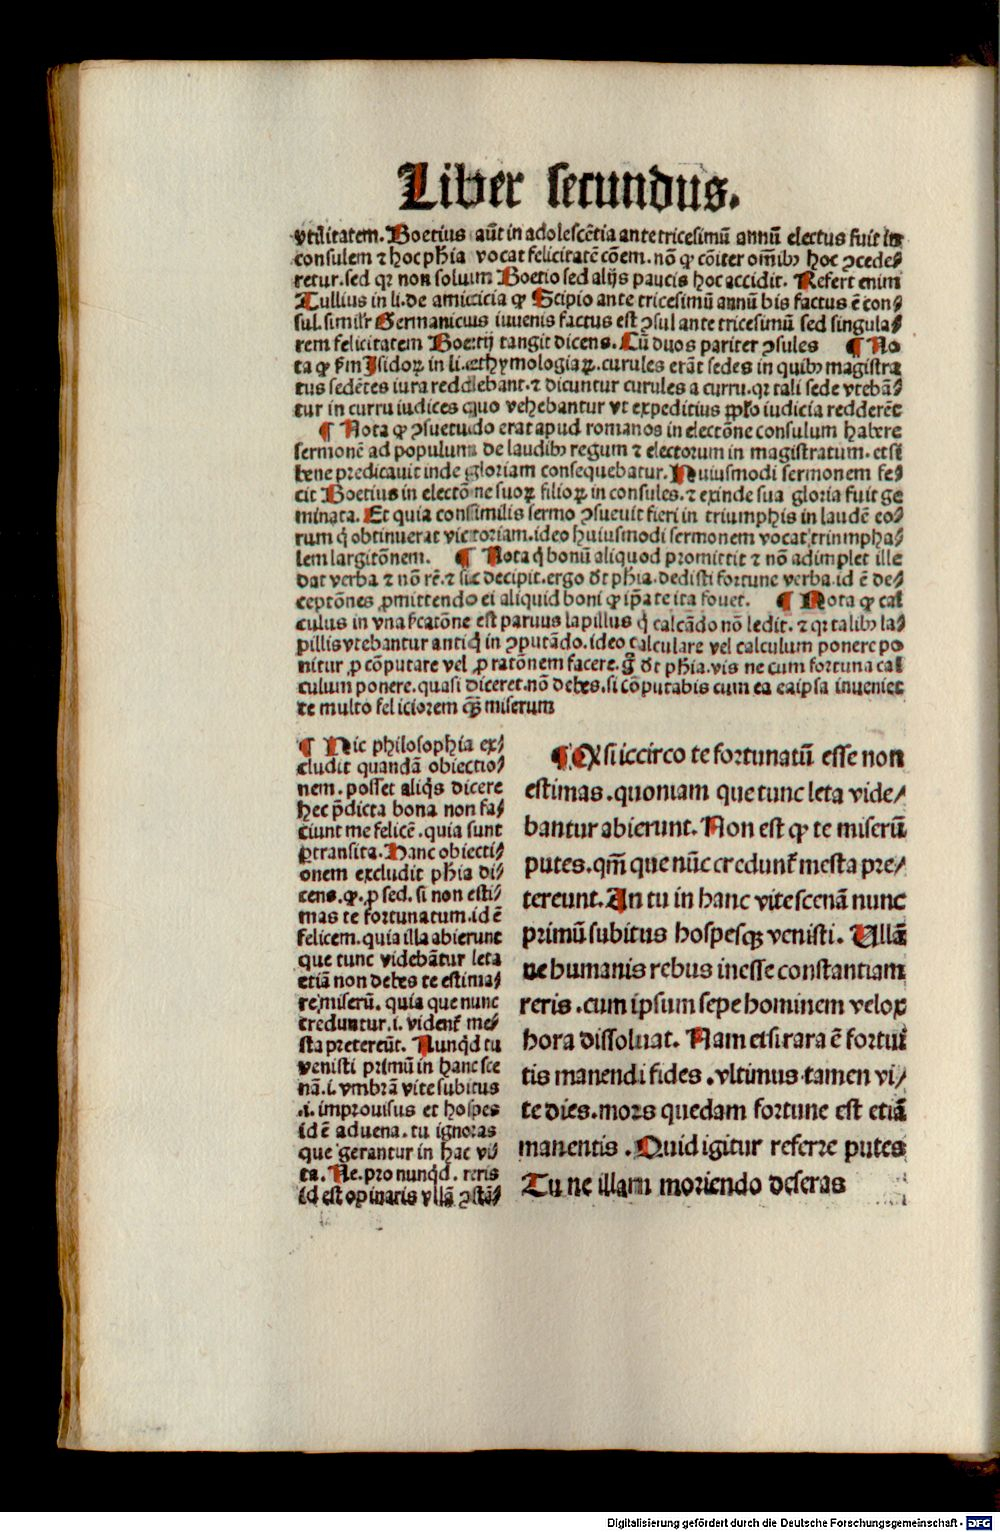 Liber secundus.
vtilitatem. Boetius aūt in adolescētia ante tricesimū annū electus fuit in
consulem ⁊ hoc phīa vocat felicitatē cōem. nō ꝙ cōiter omībꝫ hoc ꝯcede⸗
retur. sed qꝛ non solum Boetio sed alijs paucis hoc accidit. Refert enim
Tullius in li. de amicicia ꝙ Scipio ante tricesimū annū bis factus ē con⸗
sul. similr̄ Germanicus iuvenis factus est ꝯsul ante tricesimū sed singula⸗
rem felicitatem Boetij tangit dicens. Cū duos pariter ꝯsules ¶ No
ta ꝙ fm̄ Isidoꝝ in li. ethymologiaꝝ. curules erāt sedes in quibꝫ magistra
tus sedētes iura reddebant. ⁊ dicuntur curules a curru. qꝛ tali sede vtebā⸗
tur in curru iudices quo vehebantur vt expeditius ꝓplo iudicia redderēt
¶ Nota ꝙ ꝯsuetudo erat apud romanos in electōne consulum habere
sermonē ad populum de laudibꝫ regum ⁊ electorum in magistratum. et si
bene predicauit inde gloriam consequebatur. Huiusmodi sermonem fe⸗
cit Boetius in electōne suoꝝ filioꝝ in consules. ⁊ exinde sua gloria fuit ge
minata. Et quia consimilis sermo ꝯsueuit fieri in triumphis in laudē eo⸗
rum q̄ obtinuerat victoriam. ideo huiusmodi sermonem vocat triumpha⸗
lem largitōnem. ¶ Nota q̄ bonū aliquod promittit ⁊ nō adimplet ille
dat verba ⁊ nō rē. ⁊ sic decipit. ergo dt̄ phīa. dedisti fortune verba. id ē de⸗
ceptōnes ꝓmittendo ei aliquid boni ꝙ ip̄a te ita fouet. ¶ Nota ꝙ cal
culus in vna fcatōne est paruus lapillus q̄ calcādo nō ledit. ⁊ qꝛ talibꝫ la⸗
pillis vtebantur antiq̄ in ꝯputādo. ideo calculare vel calculum ponere po
nitur ꝓ cōputare vel ꝓ ratōnem facere. g̊ dt̄ phīa. vis ne cum fortuna cal
culum ponere. quasi diceret. nō debes. si cōputabis cum ea eaipsa inueniet
te multo feliciorem q̄ꝫ miserum
¶ Hic philosophia ex⸗
cludit quandā obiectio⸗
nem. posset aliq̄s dicere
hec p̄dicta bona non fa⸗
ciunt me felicē. quia sunt
ꝑtransita. Hanc obiecti⸗
onem excludit phīa di⸗
cens. ꝙ. ꝓsed. si non esti⸗
mas te fortunatum. id ē
felicem. quia illa abierunt
que tunc videbātur leta
etiā non debes te estima⸗
re miserū. quia que nunc
creduntur. i. vident̄ me⸗
sta pretereūt. Nunq̄d tu
venisti primū in hanc sce
nā. i. vmbrā vite subitus
.i. improuisus et hospes
id ē aduena. tu ignoras
que gerantur in hac vi⸗
ta. Ne. pro nunq̄d. reris
id est opinaris vllā ꝯstā⸗
¶ Qꝛ si iccirco te fortunatū esse non
estimas. quoniam que tunc leta vide⸗
bantur abierunt. Non est ꝙ te miserū
putes. qm̄ que nūc credunt̄ mesta pre⸗
tereunt. An tu in hanc vite scenā nunc
primū subitus hospesqꝫ venisti. Vllā
ne humanis rebus inesse constantiam
reris. cum ipsum sepe hominem velox
hora dissoluat. Nam etsi rara ē fortui
tis manendi fides. vltimus tamen vi⸗
te dies. mors quedam fortune est etiā
manentis. Quid igitur referre putes
Tu ne illam moriendo deseras
Digitalisierung gefördert durch die Deutsche Forschungsgemeinschaft - DFG